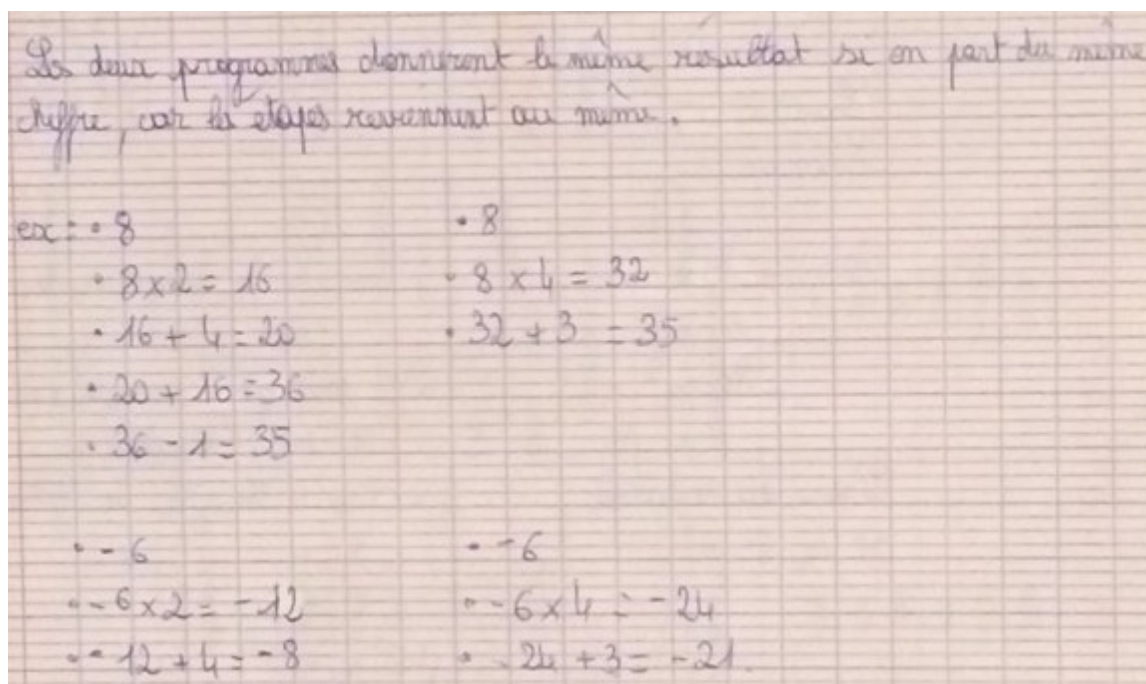 Les deux programmes donneront le même résultat si on part du même
chiffre, car les étapes reviennent au même.
ex : • 8 • 8
• 8 x 2 = 16 • 8 x 4 = 32
• 16 + 4 = 20 • 32 + 3 = 35
• 20 + 16 = 36
• 36 - 1 = 35
• - 6 • - 6
• - 6 x 2 = -12 • - 6 x 4 = -24
• - 12 + 4 = -8 • - 24 + 3 = -21